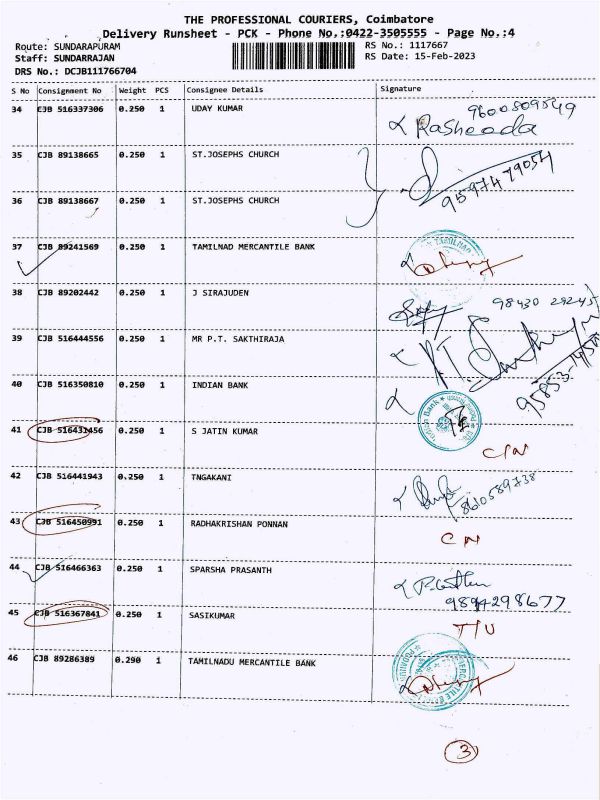 THE PROFESSIONAL COURIERS, Coimbatore
Delivery Runsheet - PCK - Phone No.:0422-3505555 - Page No.:4
Route: SUNDARAPURAM RS No.: 1117667
Staff: SUNDARRAJAN RS Date: 15-Feb-2023
DRS No.: DCJB111766704
S No Consignment No Weight PCS Consignee Details Signature
34 CJB 516337306 0.250 1 UDAY KUMAR
Rasheeda
35 CJB 89138665 0.250 1 ST.JOSEPHS CHURCH
9597479054
36 CJB 89138667 0.250 1 ST.JOSEPHS CHURCH
37 CJB 89241569 0.250 1 TAMILNAD MERCANTILE BANK
38 CJB 89202442 0.250 1 J SIRAJUDEN
98430 29245
39 CJB 516444556 0.250 1 MR P.T. SAKTHIRAJA
40 CJB 516350810 0.250 1 INDIAN BANK
41 CJB 516431456 0.250 1 S JATIN KUMAR
42 CJB 516441943 0.250 1 TNGAKANI
8610589738
43 CJB 516450991 0.250 1 RADHAKRISHAN PONNAN
CN
44 CJB 516466363 0.250 1 SPARSHA PRASANTH
9894298677
45 CJB 516367841 0.250 1 SASIKUMAR
T/U
46 CJB 89286389 0.290 1 TAMILNADU MERCANTILE BANK
3